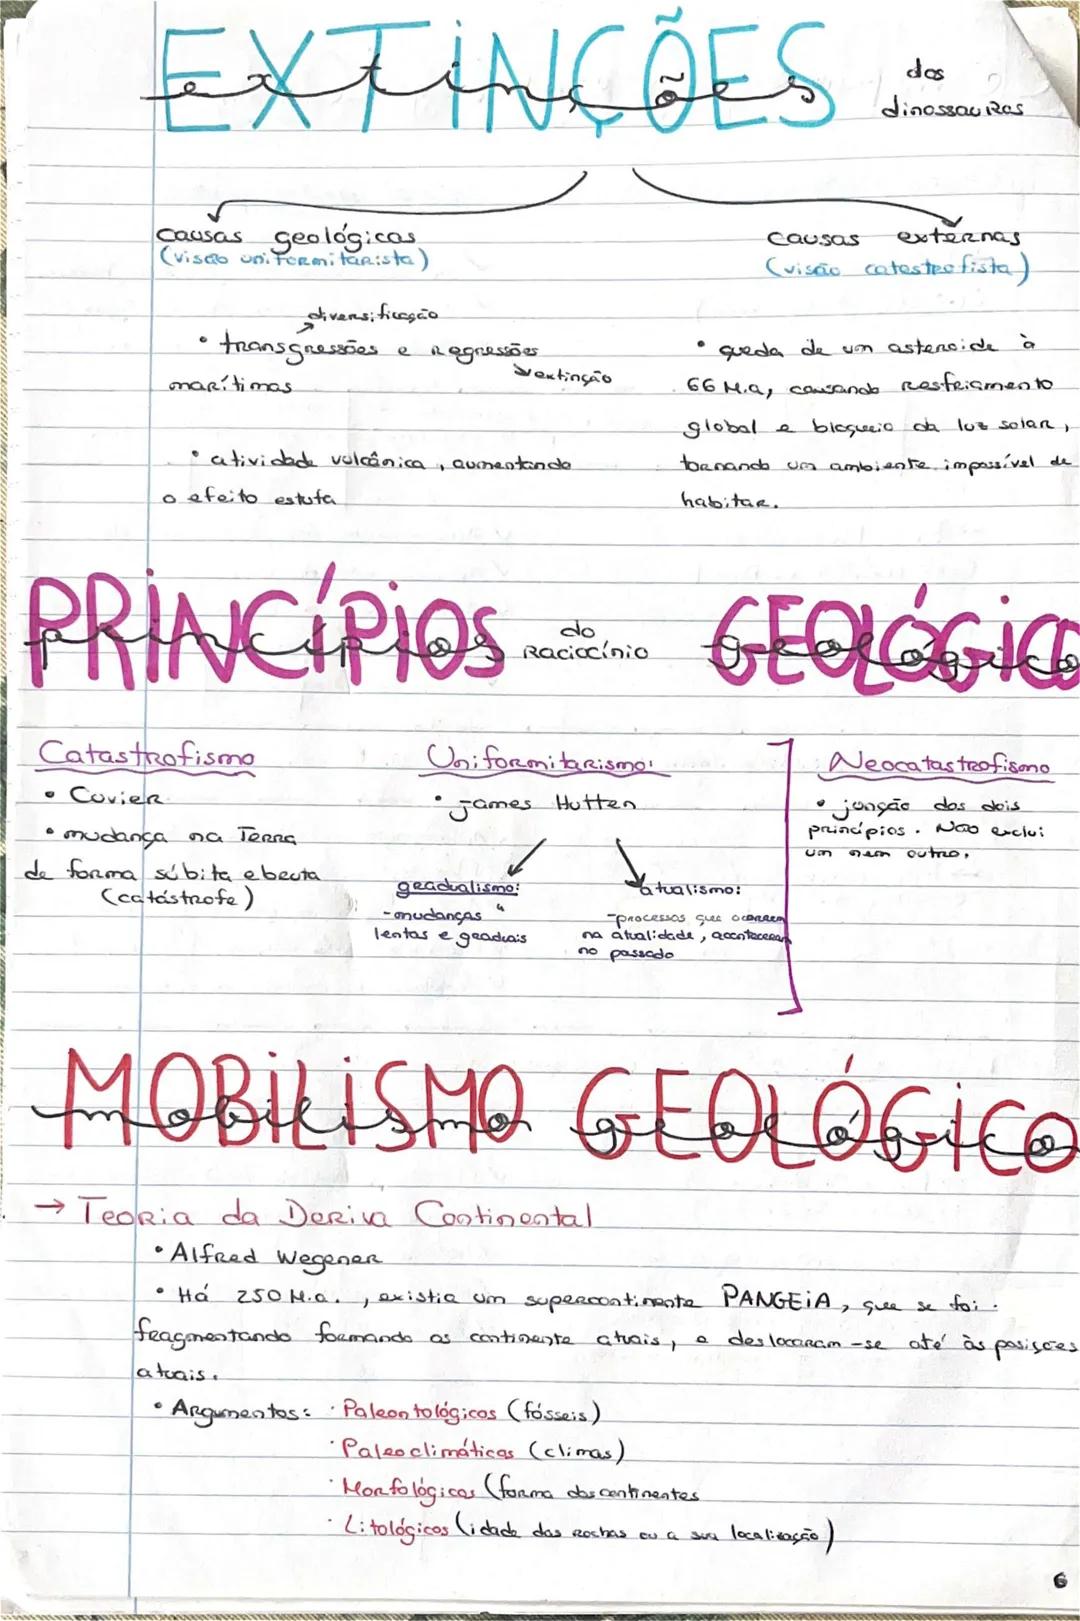 EXTINÇÕES
extinções
dos
dinossauros
causas geológicas
(visão uniformitarista)
diversificação
• transgressões e regressões
extinção
marítimas
• atividade vulcânica, aumentando
o efeito estufa
causas externas
(visão catastrofista)
• queda de um asteroide à
66 M.a, causando resfriamento
global e bloqueio da luz solar,
tornando um ambiente impossível de
habitar.
PRINCÍPIOS
princípios
do
Raciocínio
GEOLÓGICO
geológico
Catastrofismo
• Cuvier
• mudança na Terra
de forma súbita e bruta
(catástrofe)
Uniformitarismo:
• James Hutten
gradualismo:
- mudanças
lentas e graduais
atualismo:
- processos que ocorrem
na atualidade, aconteceram
no passado
Neocatastrofismo
• junção dos dois
princípios. Não exclui
um nem outro.
MOBILISMO GEOLÓGICO
mobilismo geológico
→ Teoria da Deriva Continental
• Alfred Wegener
• Há 250 M.a., existia um supercontinente PANGEIA, que se foi
fragmentando formando os continente atuais, e deslocaram-se até às posições
atuais.
• Argumentos: · Paleontológicos (fósseis)
· Paleoclimáticos (climas)
· Morfológicos (forma dos continentes
· Litológicos (idade das rochas ou a sua localização)
6